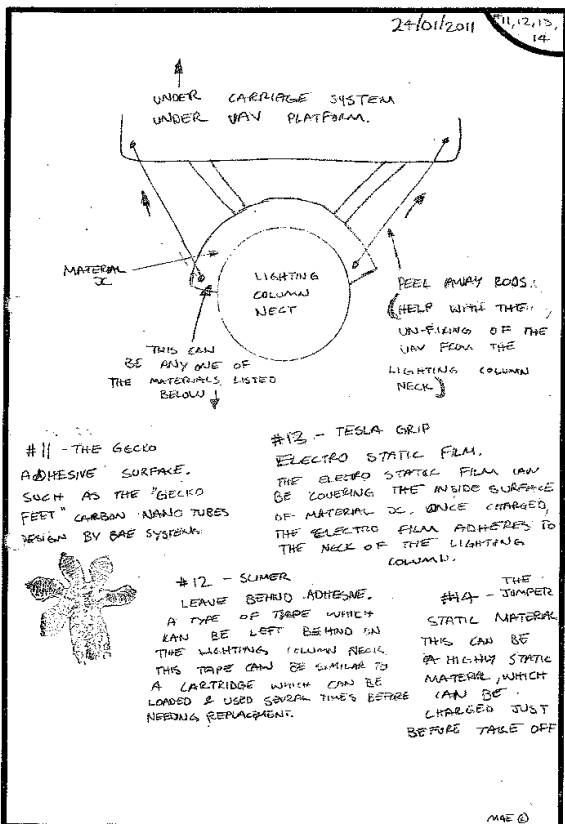 24/01/2011
#11,12,13,
14
UNDER CARRIAGE SYSTEM
UNDER UAV PLATFORM.
MATERIAL
x
LIGHTING
COLUMN
NECT
PEEL AWAY RODS.
(HELP WITH THE
UN-FIXING OF THE
UAV FROM THE
LIGHTING COLUMN
NECK)
THIS CAN
BE ANY ONE OF
THE MATERIALS LISTED
BELOW
#11 - THE GECKO
ADHESIVE SURFACE.
SUCH AS THE "GECKO
FEET" CARBON NANO TUBES
DESIGN BY BAE SYSTEMS.
#13 - TESLA GRIP
ELECTRO STATIC FILM.
THE ELECTRO STATIC FILM CAN
BE COVERING THE INSIDE SURFACE
OF MATERIAL x. ONCE CHARGED,
THE ELECTRO FILM ADHERES TO
THE NECK OF THE LIGHTING
COLUMN.
#12 - SLIMER
LEAVE BEHIND ADHESIVE.
A TYPE OF TAPE WHICH
CAN BE LEFT BEHIND ON
THE LIGHTING COLUMN NECK
THIS TAPE CAN BE SIMILAR TO
A CARTRIDGE WHICH CAN BE
LOADED & USED SEVERAL TIMES BEFORE
NEEDING REPLACEMENT.
#14 - THE JUMPER
STATIC MATERIAL
THIS CAN BE
A HIGHLY STATIC
MATERIAL, WHICH
CAN BE
CHARGED JUST
BEFORE TAKE OFF